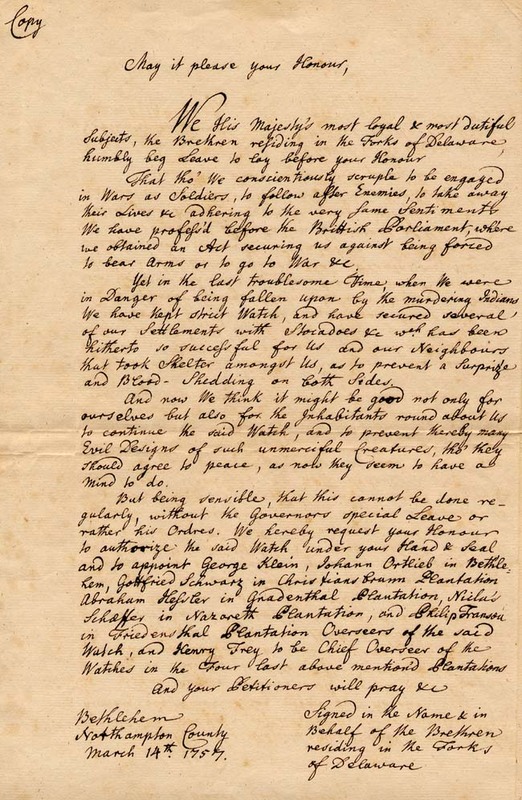 Copy
May it please your Honour,
We His Majesty's most loyal & most dutiful
Subjects, the Brethren residing in the Forks of Delaware,
humbly beg Leave to lay before your Honour
That tho' We conscientiously scruple to be engaged
in Wars as Soldiers, to follow after Enemies, to take away
their Lives &c adhering to the very same Sentiments
We have profess'd before the Brittish Parliament, where
we obtained an Act securing us against being forced
to bear Arms or to go to War &c.
Yet in the last troublesome Time, when We were
in Danger of being fallen upon by the murdering Indians
We have kept strict Watch, and have secured several
of our Settlements with Stocadoes &c wch has been
hitherto so successful for Us and our Neighbours
that took Shelter amongst Us, as to prevent a Surprize
and Blood-Shedding on both Sides.
And now We think it might be good not only for
ourselves but also for the Inhabitants round about Us
to continue the said Watch, and to prevent thereby many
Evil Designs of such unmerciful Creatures, tho they
should agree to peace, as now they seem to have a
mind to do.
But being sensible, that this cannot be done re-
gularly, without the Governors special Leave or
rather his Ordres. We hereby request your Honour
to authorize the said Watch under your Hand & Seal
and to appoint George Klein, Johann Ortlieb in Bethle-
hem, Gottfried Schwarz in Christiansbrunn Plantation
Abraham Hessler in Gnadenthal Plantation, Niclas
Schæffer in Nazareth Plantation, and Philip Transou
in Friedensthal Plantation Overseers of the said
Watch, and Henry Frey to be Chief Overseer of the
Watches in the Four last above mentiond Plantations
And your Petitioners will pray &c
Bethlehem
Northampton County
March 14th. 1757.
Signed in the Name & in
Behalf of the Brethren
residing in the Forks
of Delaware